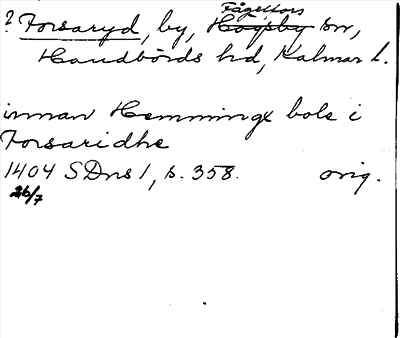 Fågelfors
? Forsaryd, by, Högsby sn,
Handbörds hd, Kalmar l.
innan Hemmingx bole i
Forsaridhe
1404 SDns 1, s. 358. orig.
26/7